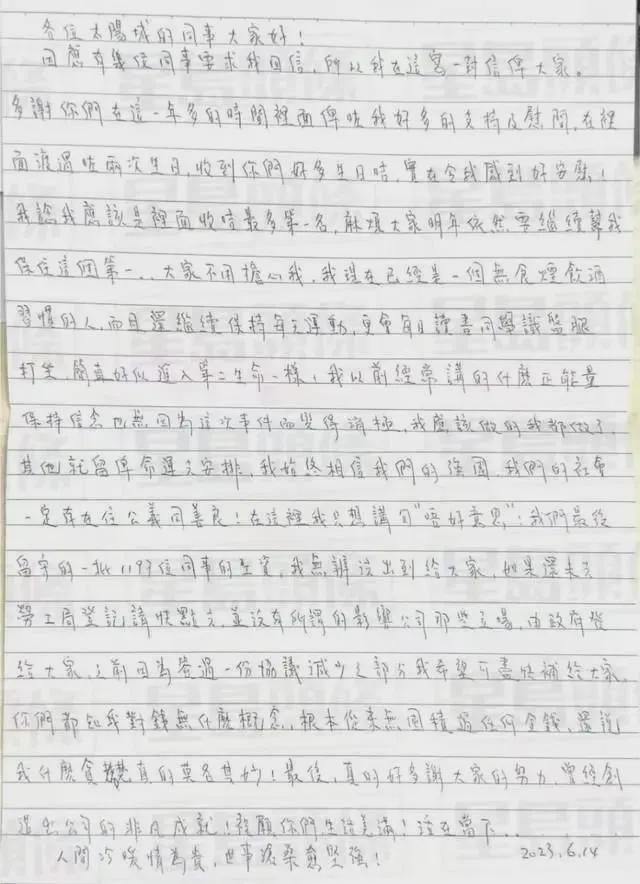 各位太陽城的同事大家好！
因應有幾位同事要求我回信，所以我在這寫一封信俾大家。
多謝你們在這一年多的時間裡面俾咗我好多的支持及慰問，在裡
面渡過咗兩次生日，收到你們好多生日咭，實在令我感到好安慰！
我諗我應該是裡面收咭最多第一名，麻煩大家明年依然要繼續幫我
保住這個第一... 大家不用擔心我，我現在已經是一個無食煙飲酒
習慣的人，而且還繼續保持每天運動，更會每日讀書同學識盤腿
打坐，簡直好似進入第二生命一樣，我以前經常講的什麼正能量
保持信念也無因為這次事件而變得消極，我應該做的我都做了
其他就留俾命運之安排，我始終相信我們的強國，我們的社會
一定存在住公義同善良！在這裡我只想講句"唔好意思"：我們最後
留守的一批1197位同事的工資，我無辦法出到給大家，如果還未去
勞工局登記請快點去，並沒有所謂的影響公司那些立場，由政府發
給大家，之前因為簽過一份協議減少之部分我希望可盡快補給大家，
你們都知我對錢無什麼概念，根本從來無囤積過任何金錢，還說
我什麼貪婪真的莫名其妙！最後，真的好多謝大家的努力，曾經創
造出公司的非凡成就！祝願你們生活美滿！活在當下..
人間冷暖情為貴，世事滄桑愈堅強！ 2023.6.14
星島頭條